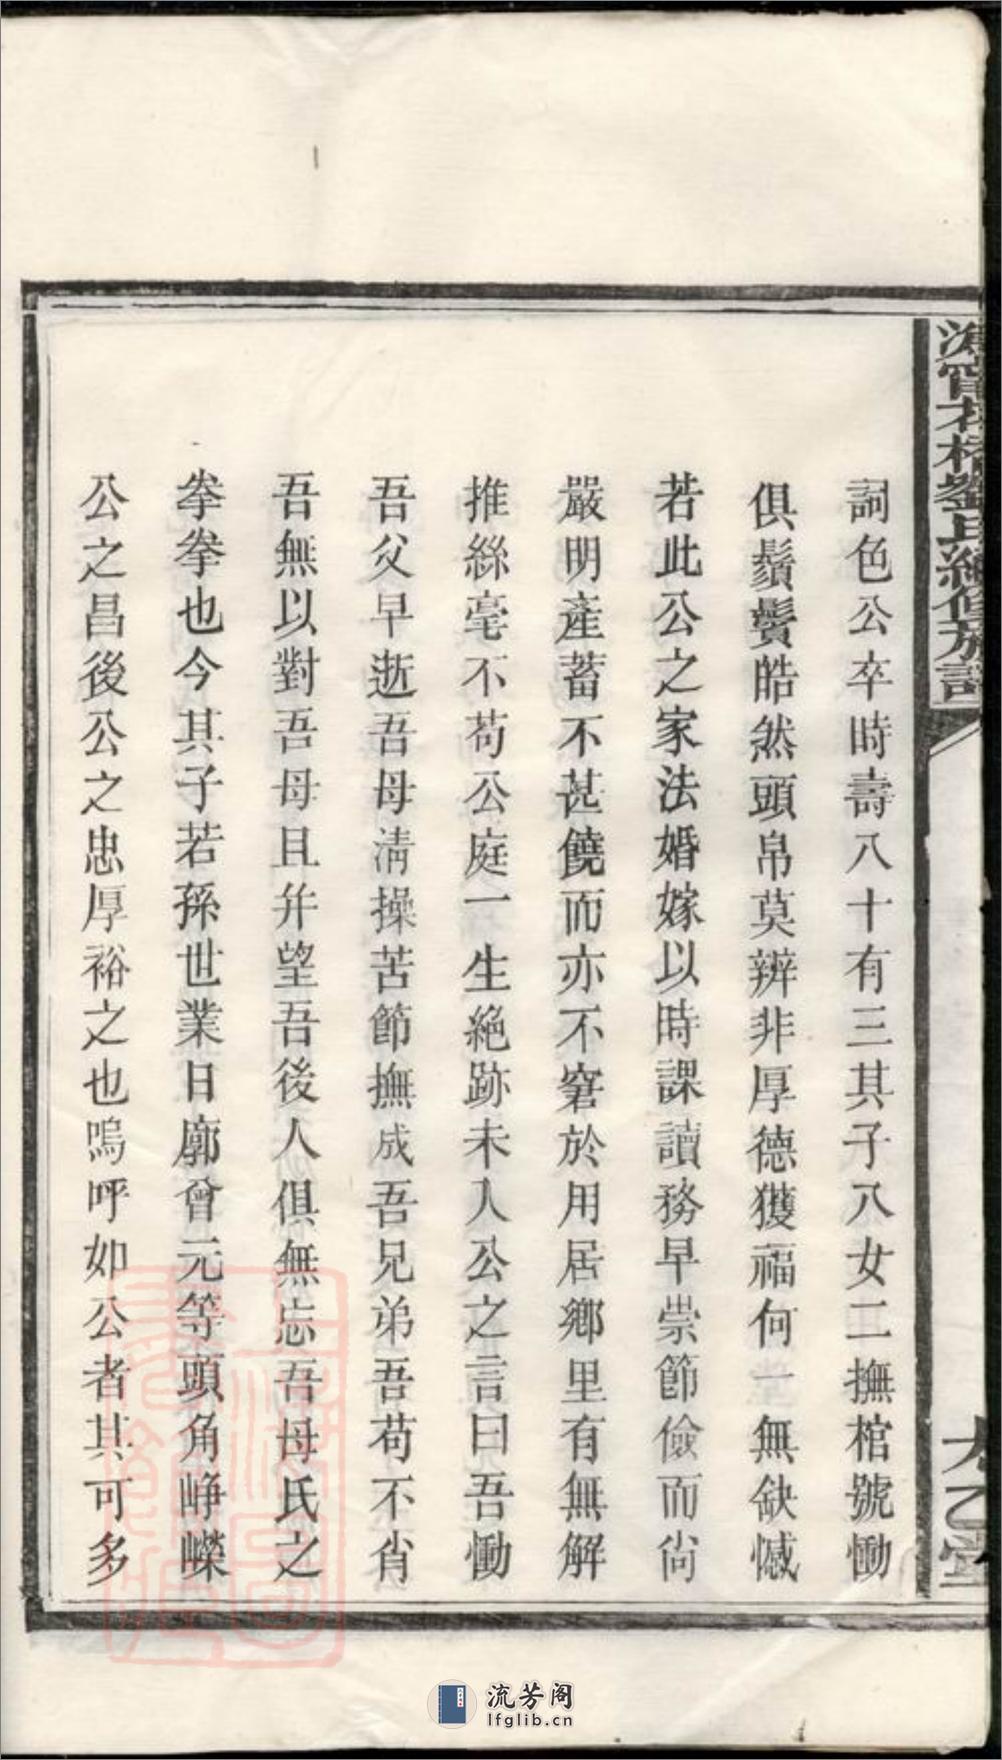 詞色公卒時壽八十有三其子八女二撫棺號慟
俱鬚鬢皓然頭帛莫辨非厚德獲福何一無缺憾
若此公之家法婚嫁以時課讀務早崇節儉而尙
嚴明產蓄不甚饒而亦不窘於用居鄉里有無解
推絲毫不苟公庭一生絕跡未入公之言曰吾慟
吾父早逝吾母淸操苦節撫成吾兄弟吾苟不肖
吾無以對吾母且幷望吾後人俱無忘吾母氏之
拳拳也今其子若孫世業日廓曾元等頭角崢嶸
公之昌後公之忠厚裕之也嗚呼如公者其可多
流芳阁
lfglib.cn